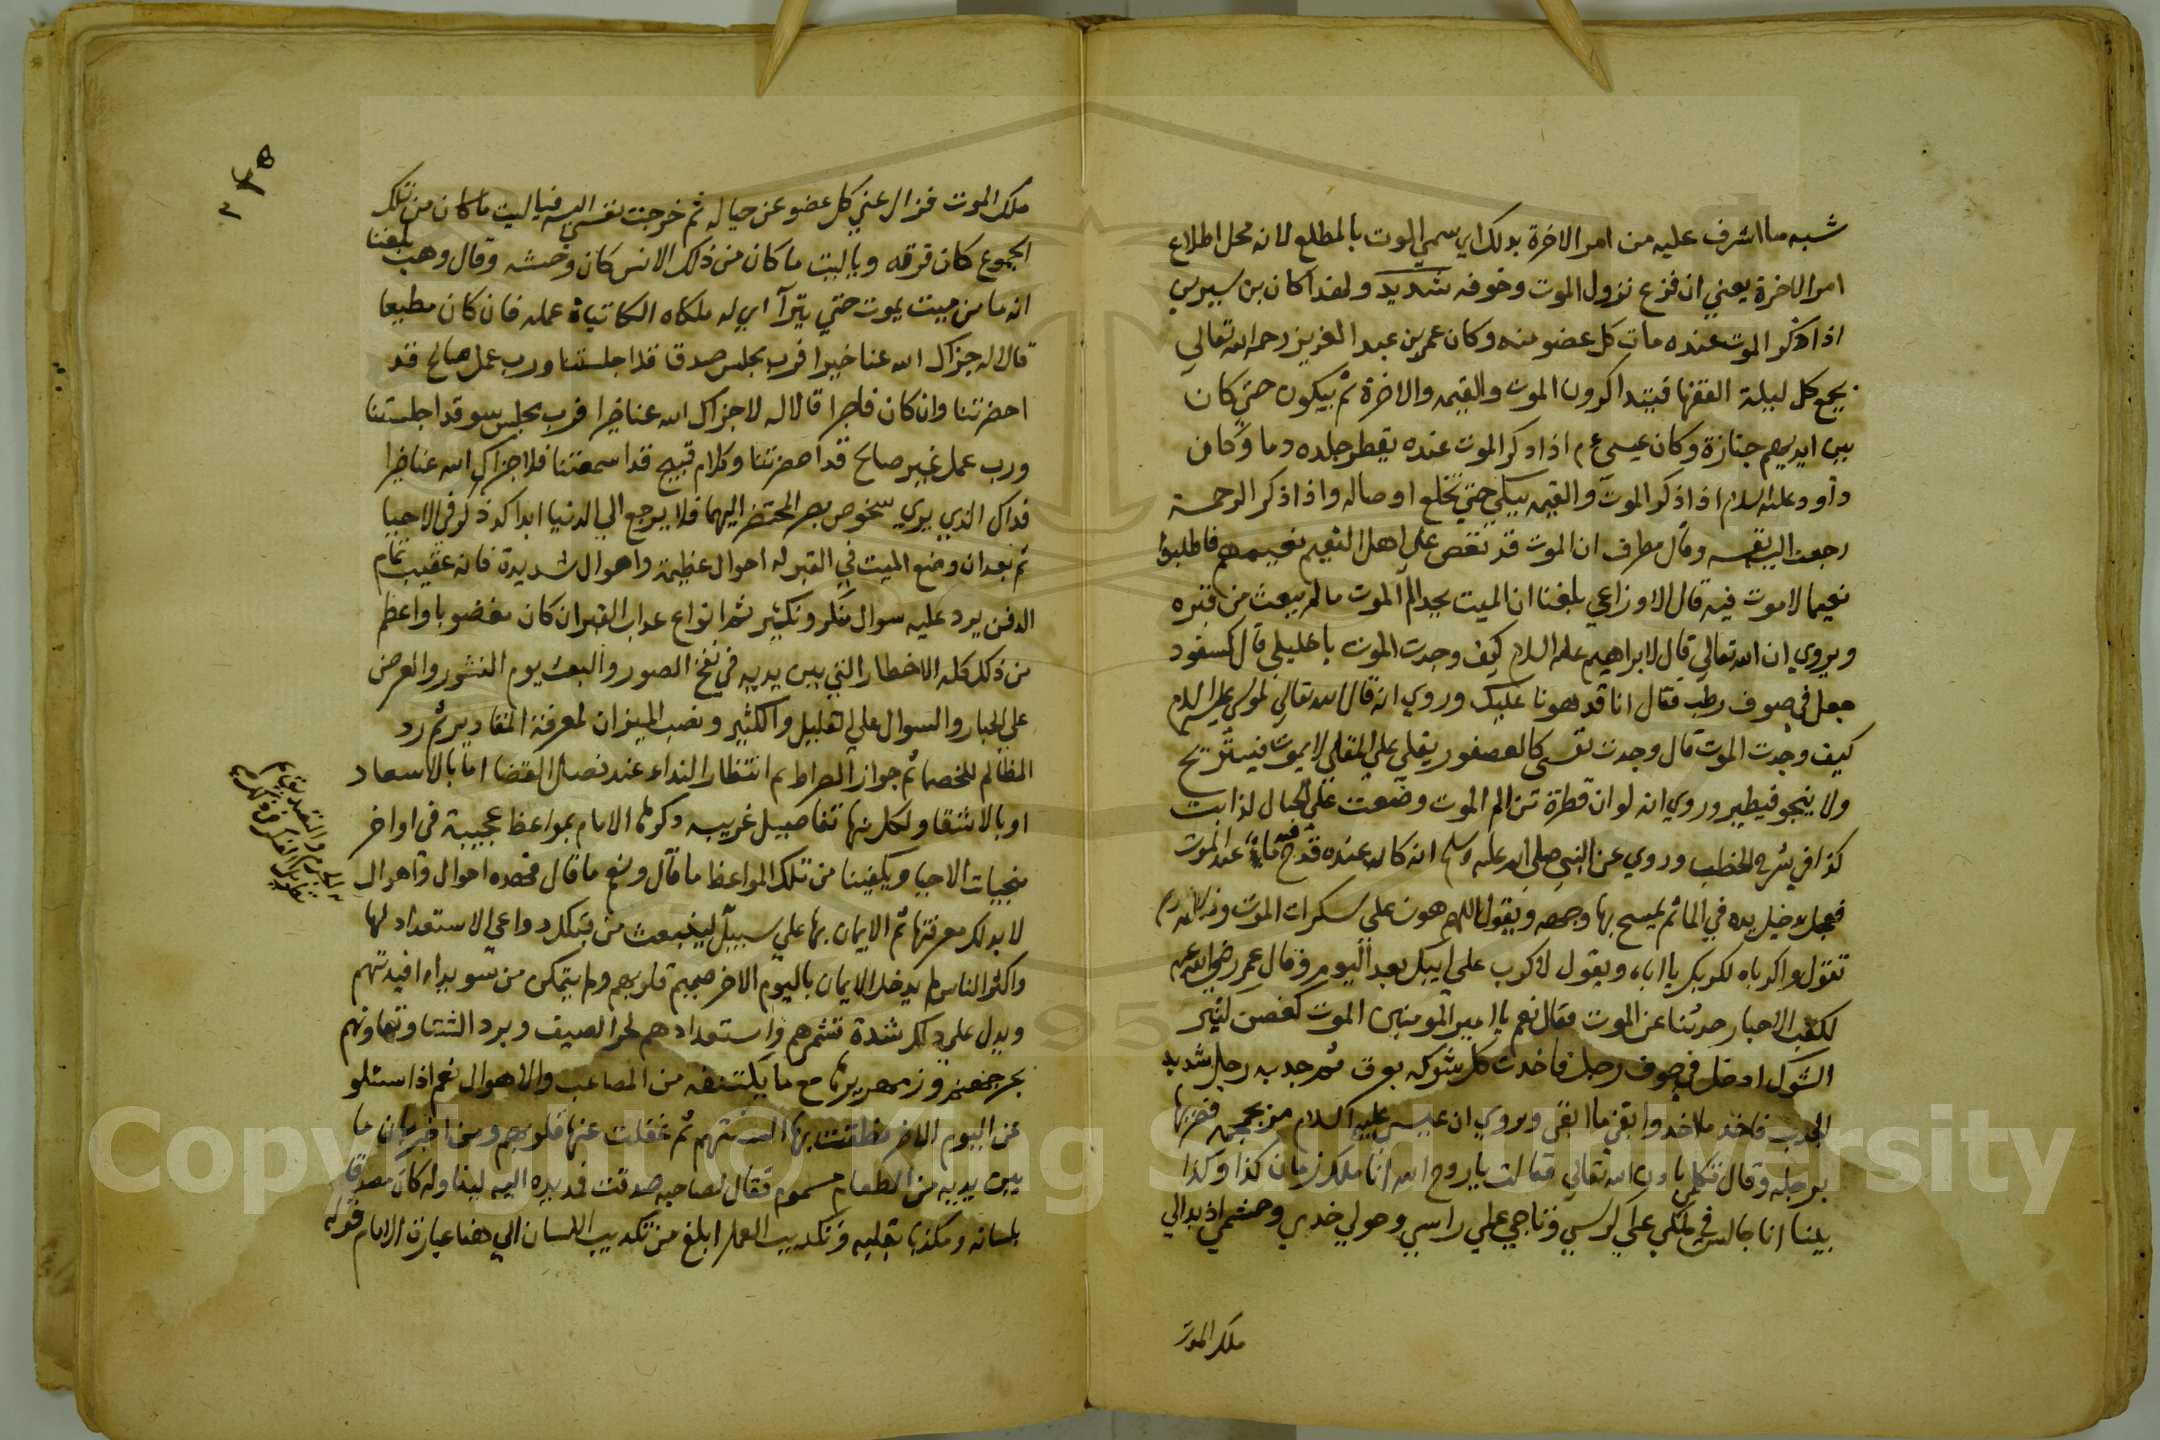 شبه ما اشرف عليه من امر الاخرة بذلك اي سمي الموت بالمطلع لانه محل اطلاع
امر الاخرة يعني ان فزع نزول الموت وخوفه شديد ولهذا كان بن سيرين
اذا ذكر الموت عنده مات كل عضو منه وكان عمر بن عبد العزيز رحمه الله تعالي
يجمع كل ليلة الفقها فيتذاكرون الموت والقيمه والاخرة ثم يبكون حتي كان
بين ايديهم جنازة وكان عيسي ع م اذا ذكر الموت عنده يقطر جلده دما وكان
داود عليه السلام اذا ذكر الموت والقيمه يبكي حتي تخلع اوصاله واذا ذكر الرحمة
رجعت اليه نفسه وقال مطرف ان الموت قد نغص علي اهل النعيم نعيمهم فاطلبوا
نعيما لا موت فيه قال الاوزاعي بلغنا ان الميت يجد الم الموت ما لم يبعث من قبره
ويروي ان الله تعالي قال لابراهيم عليه السلام كيف وجدت الموت يا خليلي قال كسفود
جعل في صوف رطب فقال انا قد هونا عليك وروي انه قال الله تعالي لموسي عليه السلام
كيف وجدت الموت قال وجدت نفسي كالعصفور يقلي علي المقلي لا يموت فيستريح
ولا ينجو فيطير وروي انه لو ان قطرة من الم الموت وضعت علي الجبال لذابت
كذا في شرح الخطب وروي عن النبي صلي الله عليه وسلم انه كان عنده قدح فيه ماء عند الموت
فجعل يدخل يده في الماء ثم يمسح بها وجهه ويقول اللهم هون علي سكرات الموت وفاطمة رض
تقول واكرباه لكربك يا اباه ويقول لا كرب علي ابيك بعد اليوم وقال عمر رضي الله عنه
لكعب الاحبار حدثنا عن الموت فقال نعم يا امير المومنين الموت كغصن كثير
الشوك ادخل في جوف رجل فاخذت كل شوكه بعرق ثم جذبه رجل شديد
الجذب فاخذ ما اخذ وابقي ما ابقي ويروي ان عيسي عليه السلام مر بجمجمه فضربها
برجله وقال تكلمي باذن الله تعالي فقالت يا روح الله انا ملك زمان كذا وكذا
بينا انا جالس في ملكي علي كرسي وتاجي علي راسي وحولي خدمي وحشمي اذ بدا لي
ملك الموت
ملك الموت فزال عني كل عضو عن حياله ثم خرجت نفسي اليه فيا ليت ما كان من تلك
الجموع كان فرقه ويا ليت ما كان من ذلك الانس كان وحشه وقال وهب بلغنا
انه ما من ميت يموت حتي يترآ اي له ملكاه الكاتبان عمله فان كان مطيعا
قالا له جزاك الله عنا خيرا فرب مجلس صدق قد اجلستنا ورب عمل صالح قد
احضرتنا وان كان فاجرا قالا له لا جزاك الله عنا خيرا فرب مجلس سو قد اجلستنا
ورب عمل غير صالح قد احضرتنا وكلام قبيح قد اسمعتنا فلا جزاك الله عنا خيرا
فذاك الذي يري شخوص بصر المحتضر اليهما فلا يرجع الي الدنيا ابدا كذا ذكر في الاحيا
ثم بعد ان وضع الميت في القبر له احوال عظيمة واهوال شديدة فانه عقيب تمام
الدفن يرد عليه سوال منكر ونكير ثم انواع عذاب القبر ان كان مغضوبا واعظم
من ذلك كله الاخطار التي بين يديه في نفخ الصور والبعث يوم النشور والعرض
علي الجبار والسوال علي القليل والكثير ونصب الميزان لمعرفة المقادير ثم رد
المظالم للخصما ثم جواز الصراط ثم انتظار النداء عند فصل القضا اما بالاسعاد
او بالاشقا ولكل منها تفاصيل غريبه ذكرها الامام بمواعظ عجيبة في اواخر
منجيات الاحيا ويكفينا من تلك المواعظ ما قال ونعم ما قال فهذه احوال واهوال
لا بد لك معرفتها ثم الايمان بها علي سبيل لينبعث من قبلك دواعي الاستعداد لها
واكثر الناس لم يدخل الايمان باليوم الاخر صميم قلوبهم ولم يتمكن من سويداء افيدتهم
ويدل علي ذلك شدة تشمرهم واستعدادهم لحر الصيف وبرد الشتا وتهاونهم
بحر جهنم وزمهريرها مع ما يكتنفه من المصاعب والاهوال نعم اذا سئلو
عن اليوم الاخر نطقت بها السنتهم ثم غفلت عنها قلوبهم ومن اخبر بان ما
بين يديه من الطعام مسموم فقال لصاحبه صدقت فمد يده اليه ليناوله كان مصدقا
بلسانه ومكذبا بقلبه وتكذيب العمل ابلغ من تكذيب اللسان الي هنا عبارة الامام قوله